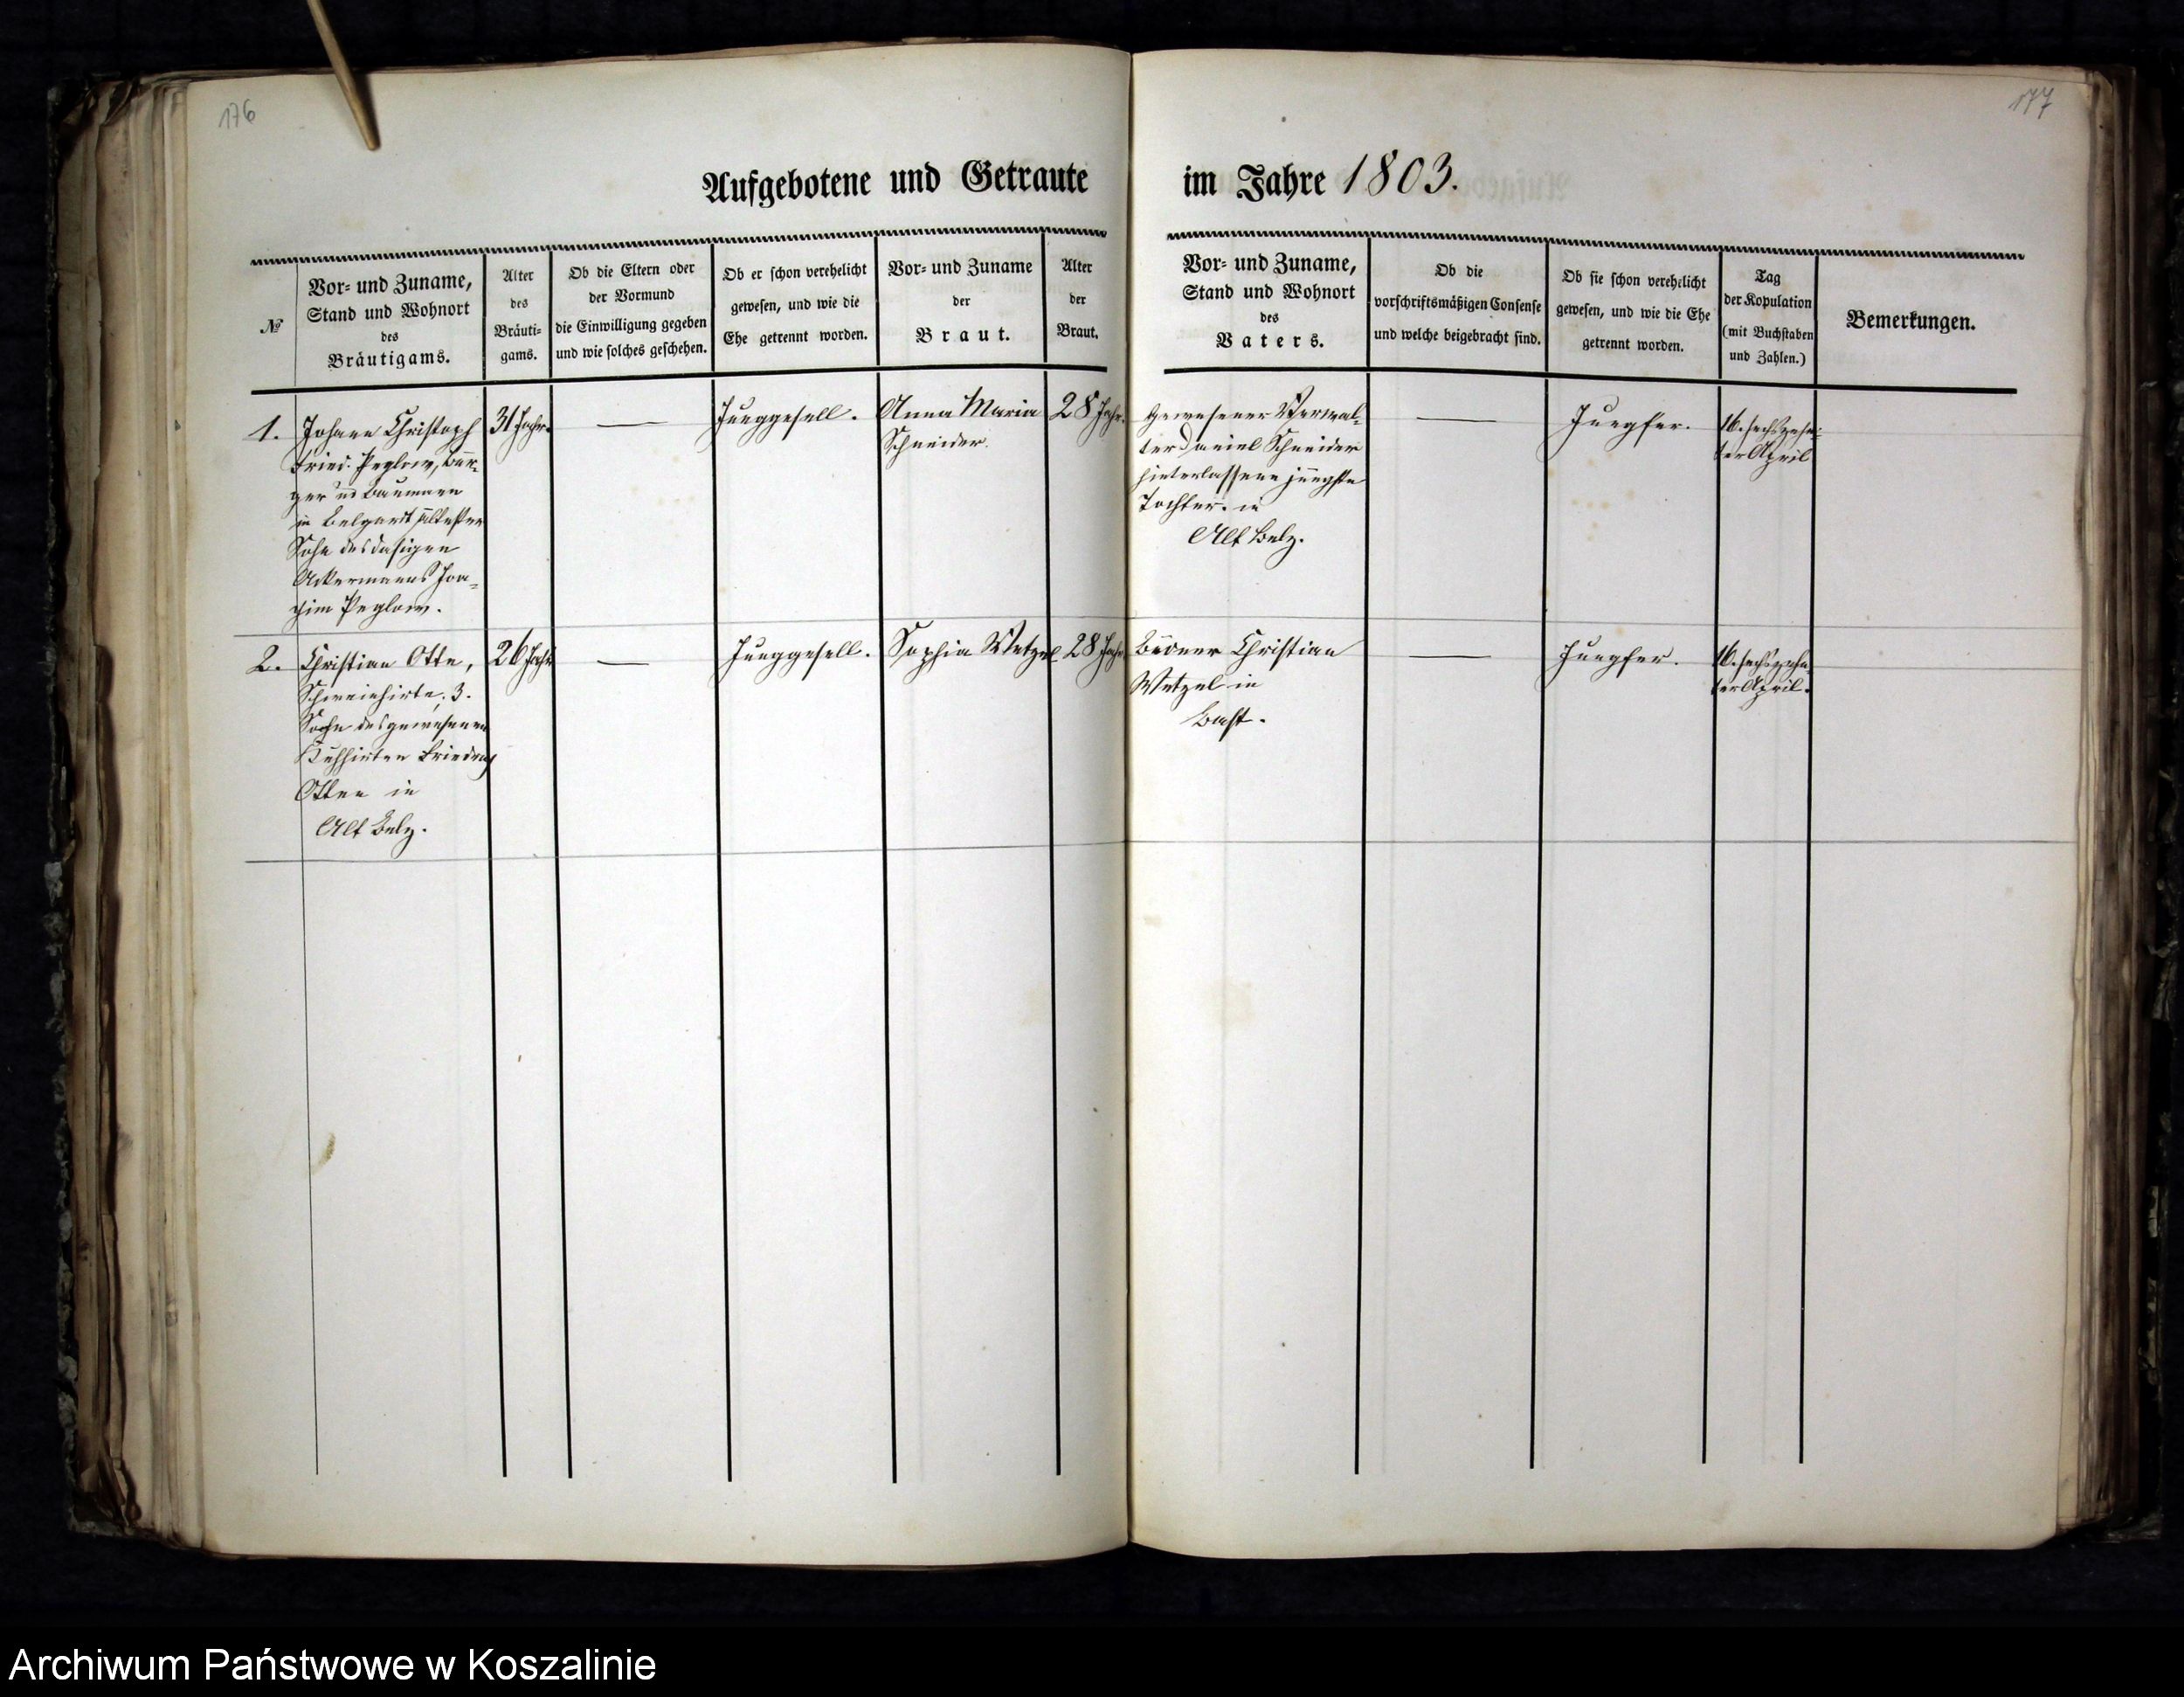 176
177
Aufgebotene und Getraute im Jahre 1803.
№
Vor- und Zuname,
Stand und Wohnort
des
Bräutigams.
Alter
des
Bräuti-
gams.
Ob die Eltern oder
der Vormund
die Einwilligung gegeben
und wie solches geschehen.
Ob er schon verehelicht
gewesen, und wie die
Ehe getrennt worden.
Vor- und Zuname
der
Braut.
Alter
der
Braut.
Vor- und Zuname,
Stand und Wohnort
des
Vaters.
Ob die
vorschriftsmäßigen Consense
und welche beigebracht sind.
Ob sie schon verehelicht
gewesen, und wie die Ehe
getrennt worden.
Tag
der Kopulation
(mit Buchstaben
und Zahlen.)
Bemerkungen.
1.
Johann Christoph
Fried. Peglow, Bür-
ger u Baumann
in Belgardt ältester
Sohn des dasigen
Ackermanns Joa-
chim Peglow.
31 Jahr.
—
Junggesell.
Anna Maria
Schneider.
28 Jahr.
Gewesener Verwal-
ter Daniel Schneider
hinterlassene jüngste
Tochter. in
Alt Belz.
—
Jungfer.
16. sechszehn-
ter April
2.
Christian Otte,
Schweinhirte, 3.
Sohn des gewesenen
Kuhhirten Friedrich
Otten in
Alt Belz.
26 Jahr
—
Junggesell.
Sophia Wetzel
28 Jahr
Büdner Christian
Wetzel in
Bast.
—
Jungfer.
16. sechszehn-
ter April.
Archiwum Państwowe w Koszalinie